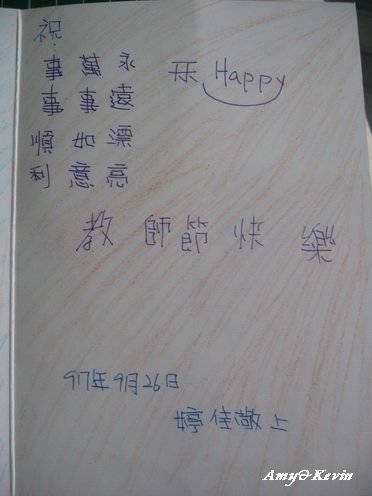 祝:
永遠漂亮
萬事如意
事事順利
Happy
教師節快樂
97年9月26日
婷佳敬上
Amy&Kevin